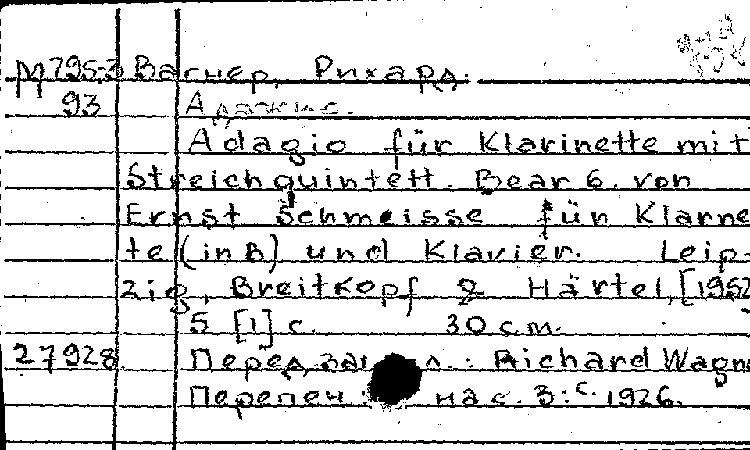 М795-3 Вагнер, Рихард.
93 Адажио.
Adagio für Klarinette mit
Streichquintett. Bearb. von
Ernst Schmeisse für Klarne
te (in B) und Klavier. Leip-
zig, Breitkopf & Härtel, [1952
5 [1] с. 30 см.
27928 Перед. : Richard Wagn
Перепеч. на с. 3: с. 1926.